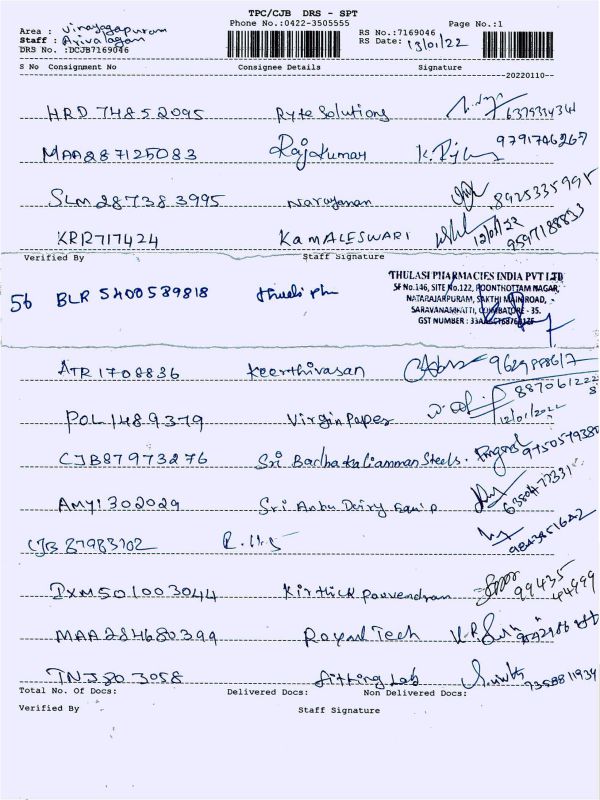 TPC/CJB DRS - SPT
Phone No.:0422-3505555 Page No.:1
Area : Vinayagapuram
Staff : Arivalagan
DRS No. :DCJB7169046
RS No.:7169046
RS Date: 13/01/22
S No Consignment No Consignee Details Signature
20220110
HRD 74852095 Ryte Solutions 6379354341
MAA287125083 Rajkumar K. 9791746267
SLM 287383995 Narayanan 8925335995
KRR717424 KAMALESWARI 12/01/22 9597188853
Verified By Staff Signature
56 BLR 5400539818
THULASI PHARMACIES INDIA PVT LTD
SF No.146, SITE No.122, POONTHOTTAM NAGAR,
NATARAJARPURAM, SAKTHI MAIN ROAD,
SARAVANAMPATTI, COIMBATORE - 35.
GST NUMBER :
ATR1708836 Keerthivasan
POL1489379 Virgin Paper 12/01/2022
CJB87973276 Sri Badhakaliamman Steels. 9750579380
AMY1302029 Sri Anbu Dairy Equip
CJB 87983102
IXM501003044 Kirthick Poovendran 99435 44999
MAA284680399 Royal Tech
TNJ803058 Fitting Lab 7358811934
Total No. Of Docs: Delivered Docs: Non Delivered Docs:
Verified By Staff Signature